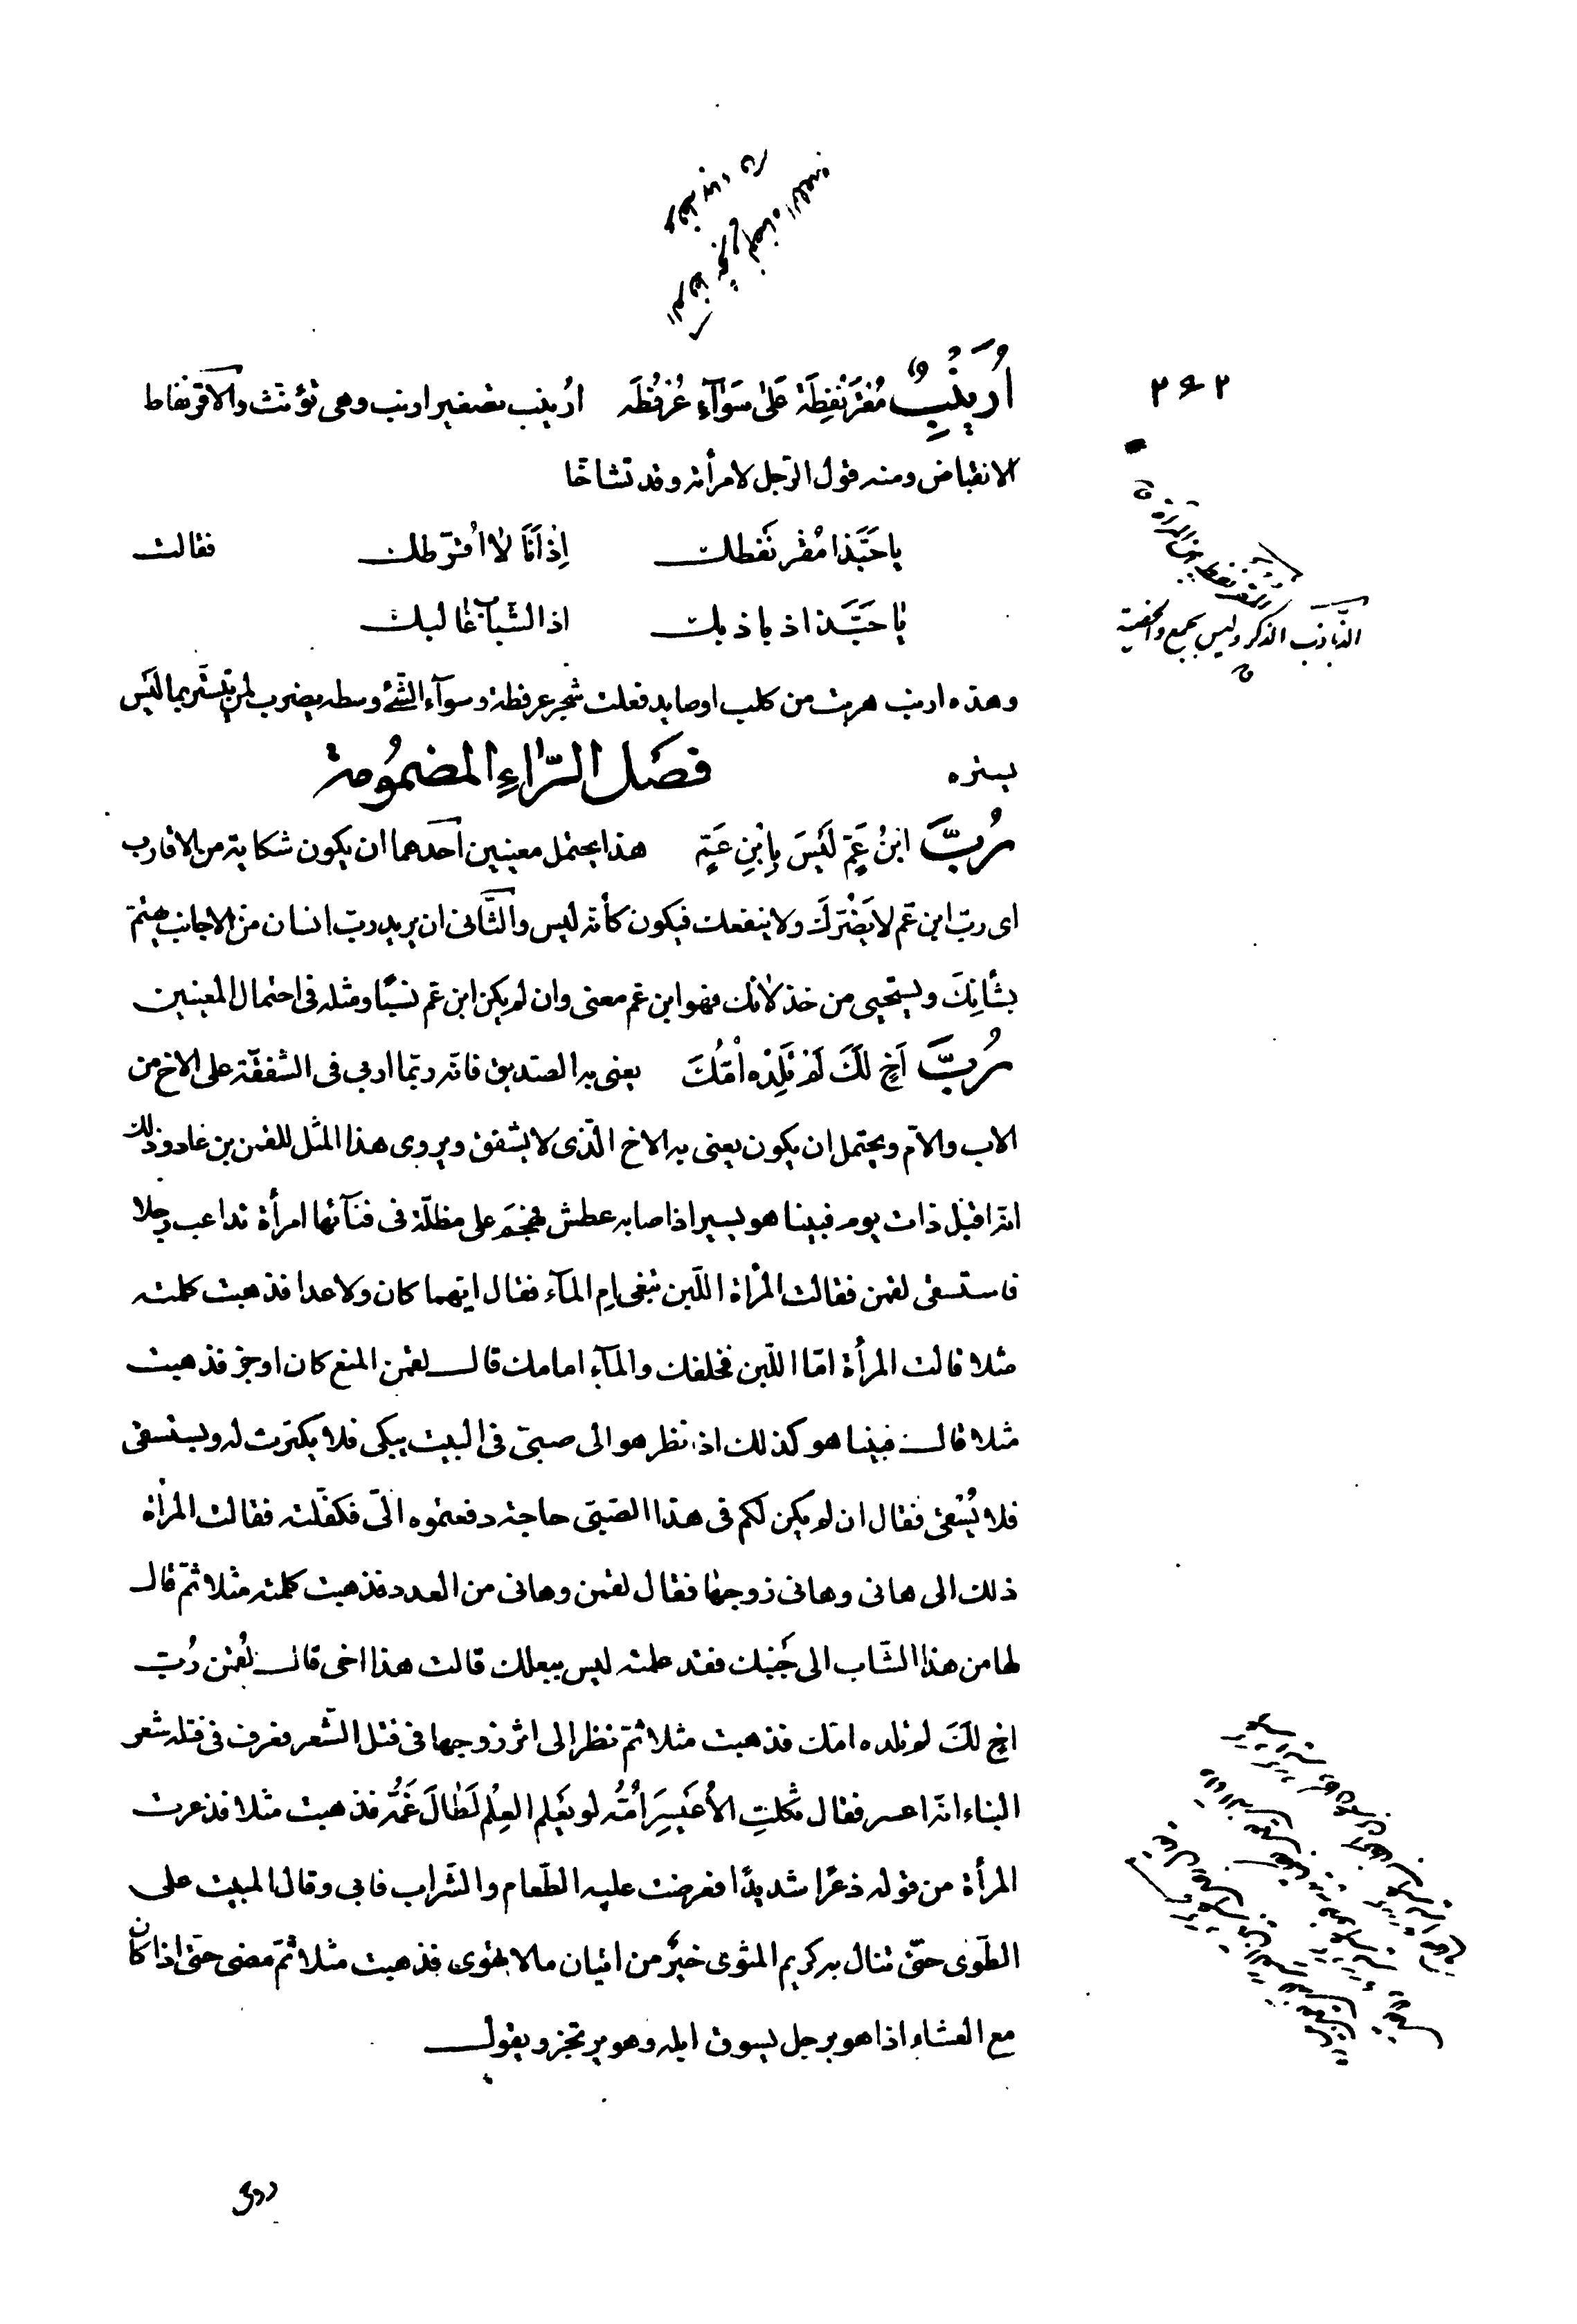 أُرَيْنِبٌ مُقْرَنْفِطَة عَلىٰ سَوَآءِ عُرْفُطَه ارُينب تصغير ارنب وهى تؤنث والاقرنفاط
الانقباض ومنه قول الرّجل لامرأته وقد تشاخّا
يا حَبَّذا مُقْرنَفطك إِذْ اَنَا لا اُفرّطك فقالت
يٰا حَبَّذا ذباذبك اذ الشّباب غٰالبك
وهذه ارنب هربت من كلب او صايد فعلت شجر عرفطة وسوآء الشّئ وسطه يضرب لمن يتستّر بما ليَس
يستره فصَل الرّاءِ المضموُمة
رُبَّ ابنُ عَمٍّ لَيْسَ بِابْنِ عَمٍّ هذا يحتمل معنيين احدهما ان يكون شكاية من الاقارب
اى ربّ ابن عمّ لا يَنْصُرَكَ ولا ينفعك فيكون كأنّه ليس والثّانى ان يريد ربّ انسان من الاجانب يهتمّ
بشأنِكَ ويستحيى من خذلانك فهو ابن عمّ معنى وان لم يكن ابن عمّ نسبًا ومثله فى احتمال المعنيين
رُبَّ اَخٍ لَكَ لَمْ تَلِدْه اُمُّكَ يعنى به الصّديق فانّه ربّما اربى فى الشّفقة على الاخ من
الاب والامّ ويحتمل ان يكون يعنى به الاخ الّذى لا يشفق ويروى هذا المثل للقمن بن عاد وذلك
انّه اقبل ذات يوم فبينا هو يسير اذ اصابه عطش فهجَم على مظلّة فى فنآئها امرأة تداعب رجلا
فاستسقى لقمن فقالت المرْاة اللّبن تبغى ام المآء فقال ايّهما كان ولا عدا فذهبت كلمته
مثلا قالت المرأة امّا اللّبن فخلفك والمآء امامك قال لقمن المنع كان اوجز فذهبت
مثلا قال فبينا هو كذلك اذ نظر هو الى صبىّ فى البيت يبكى فلا يكترث له ويستسقى
فلا يُسْقى فقال ان لم يكن لكم فى هذا الصّبىّ حاجة دفعتموه الىّ فكفّلته فقالت المرْاة
ذلك الى هانى وهانى زوجها فقال لقمن وهانى من العدد فذهبت كلمته مثلا ثمّ قال
لها من هذا الشّاب الى جَنبك فقد علمته ليس ببعلك قالت هذا اخى قال لقمن رُبّ
اخٍ لكَ لم تلده امّك فذهبت مثلا ثمّ نظر الى اثر زوجها فى فتل الشّعر فعرف فى فتله شعر
البناء انّه اعسر فقال ثكلتِ الأُعَيْسِرَ اُمُّه لو يَعْلم العِلْم لَطٰالَ غَمُّه فذهبت مثلا فذعرت
المرأة من قوله ذعرًا شديدًا فعرضت عليه الطّعام والشّراب فابى وقال المبيت على
الطَوٰى حتّى تنال به كريم المثوى خيرٌ من اتيان ما لا يهوى فذهبت مثلا ثمّ مضى حتى اذا كان
مع العشاء اذا هو برجل يسوق ابله وهو يرتجز ويقول